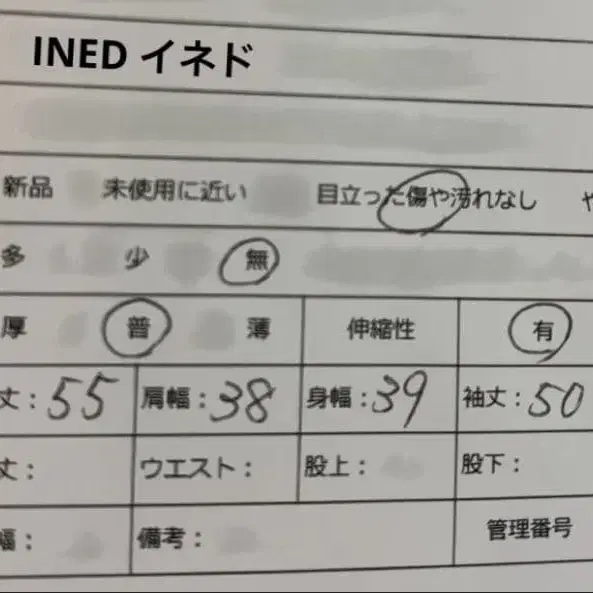 INED イネド
新品 未使用に近い 目立った傷や汚れなし
多 少 無
厚 普 薄 伸縮性 有
丈：55 肩幅：38 身幅：39 袖丈：50
丈： ウエスト： 股上： 股下：
幅： 備考： 管理番号